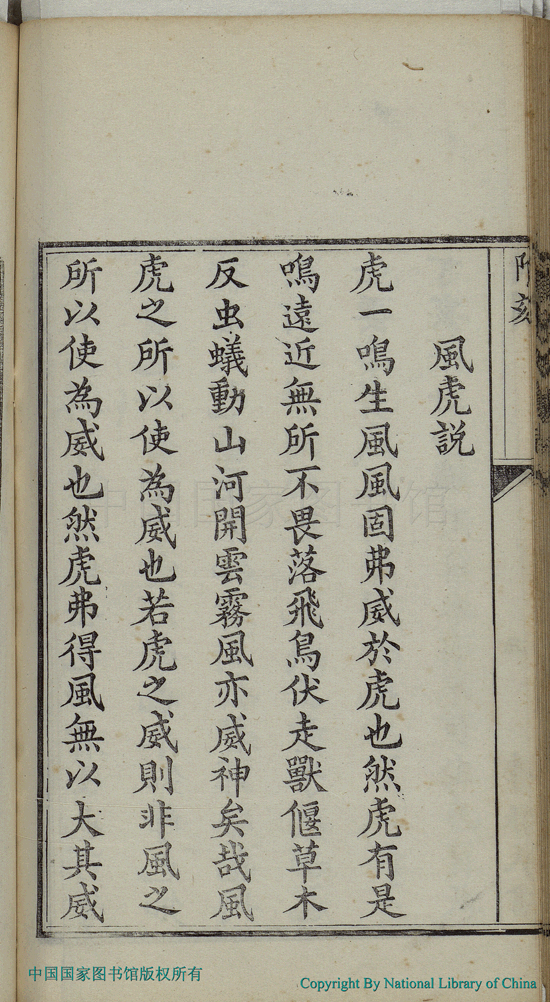 附刻
風虎說
虎一鳴生風風固弗威於虎也然虎有是
鳴遠近無所不畏落飛鳥伏走獸偃草木
反虫蟻動山河開雲霧風亦威神矣哉風
虎之所以使為威也若虎之威則非風之
所以使為威也然虎弗得風無以大其威
中国国家图书馆
中国国家图书馆版权所有
Copyright By National Library of China